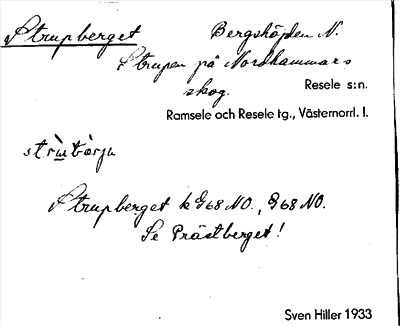 Strupberget Bergshöjden N.
Strupen på Nordhammars
skog.
Resele s:n.
Ramsele och Resele tg., Västernorrl. l.
Strupberget k G68 NO., G68 NO.
Se Prästberget!
Sven Hiller 1933